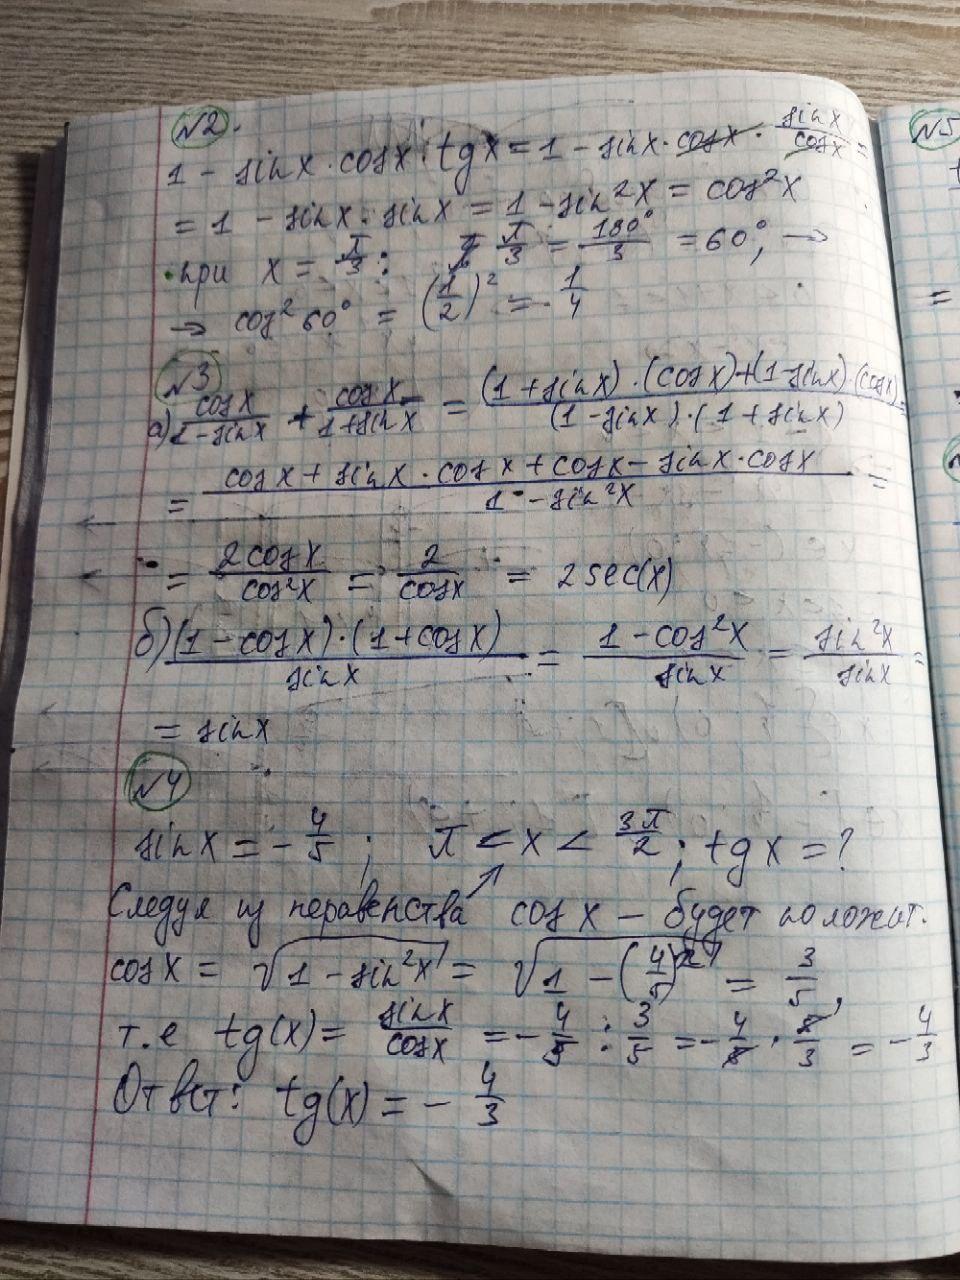 №2.
1 - sinx · cosx · tgx = 1 - sinx · cosx · sinx/cosx =
= 1 - sinx · sinx = 1 - sin²x = cos²x
при x = π/3 : π/3 = 180°/3 = 60°, →
→ cos²60° = (1/2)² = 1/4
№3
а) cosx/(1-sinx) + cosx/(1+sinx) = ((1+sinx)·(cosx)+(1-sinx)·(cosx))/((1-sinx)·(1+sinx)) =
= (cosx + sinx · cosx + cosx - sinx · cosx)/(1 - sin²x) =
= 2cosx/cos²x = 2/cosx = 2sec(x)
б) ((1-cosx)·(1+cosx))/sinx = (1-cos²x)/sinx = sin²x/sinx =
= sinx
№4
sinx = -4/5 ; π < x < 3π/2 ; tgx = ?
Следуя из неравенства cosx - будет положит.
cosx = √(1-sin²x) = √(1-(4/5)²) = 3/5,
т.е tg(x) = sinx/cosx = -4/5 : 3/5 = -4/5 · 5/3 = -4/3
Ответ: tg(x) = -4/3
№5
=